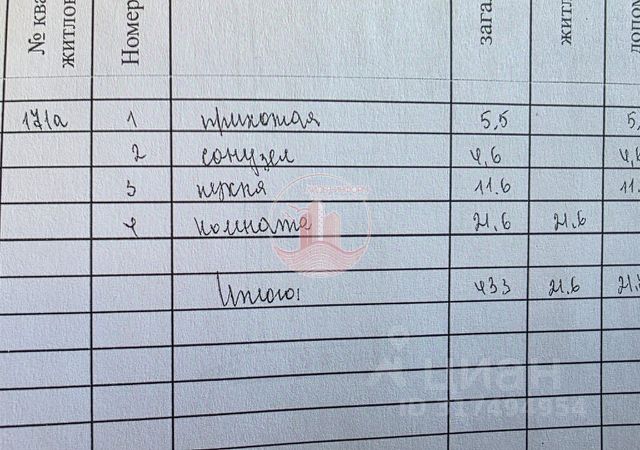 № ква
житлов
Номер
загал
житл
допом
171а 1 прихожая 5,5 5,
2 сонузел 4,6 4,6
3 кухня 11.6 11.
4 комната 21,6 21.6
Итого: 433 21.6 21.
ЦИАН
ID 317494954